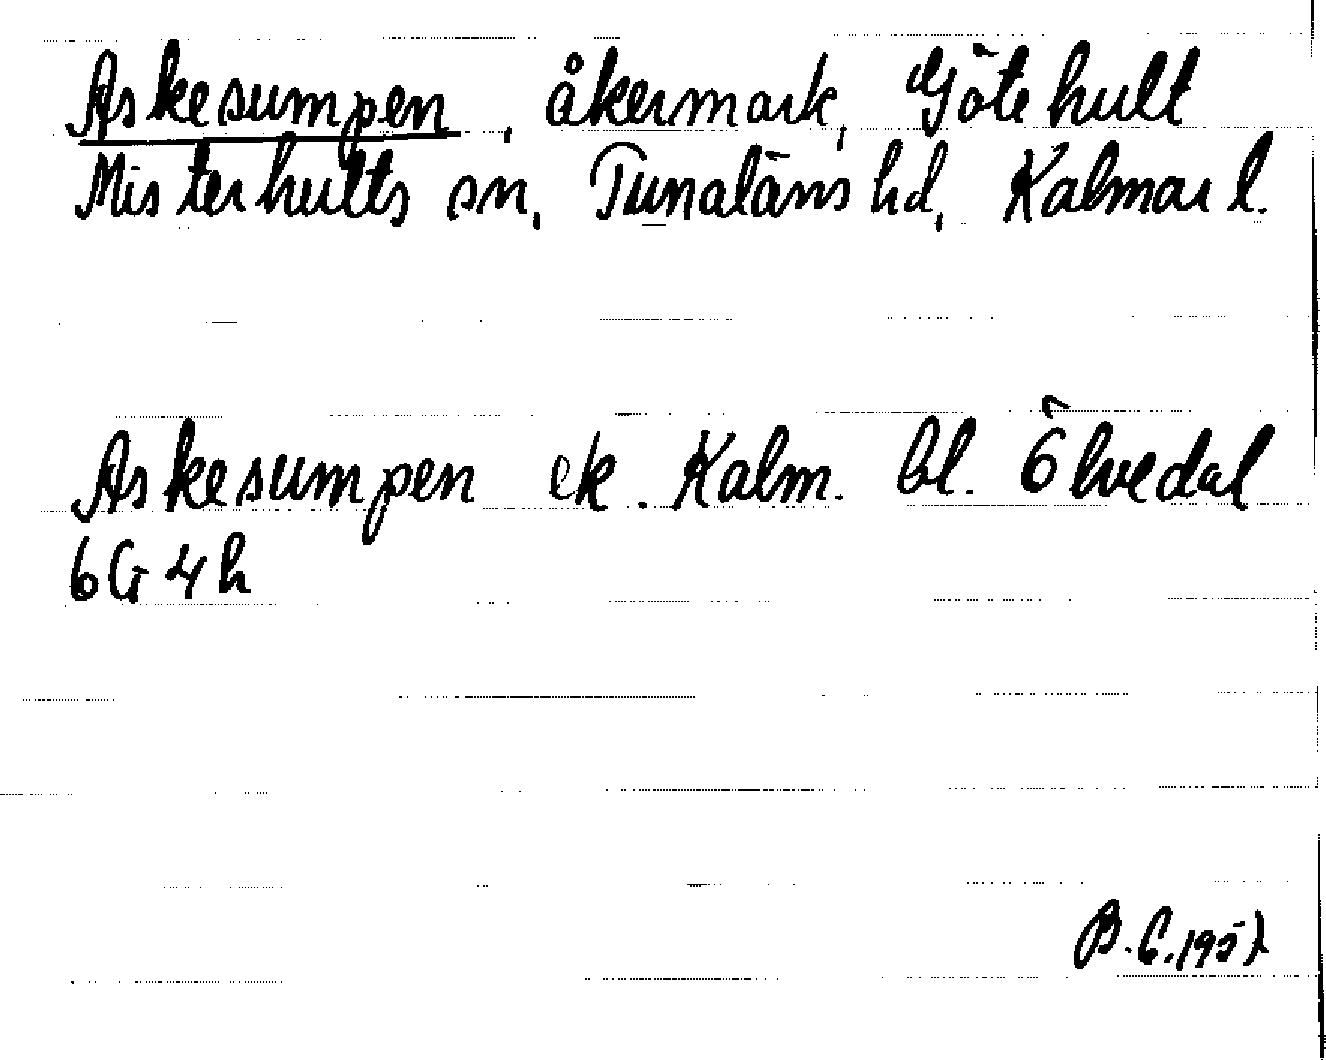 Askesumpen, åkermark, Götehult
Misterhults sn, Tunaläns hd, Kalmar l.
Askesumpen ek. Kalm. bl. Ölvedal
6G4h
B.C. 1957